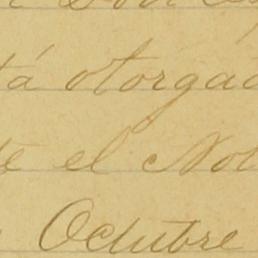 tá otorgad
te el Not
Octubre